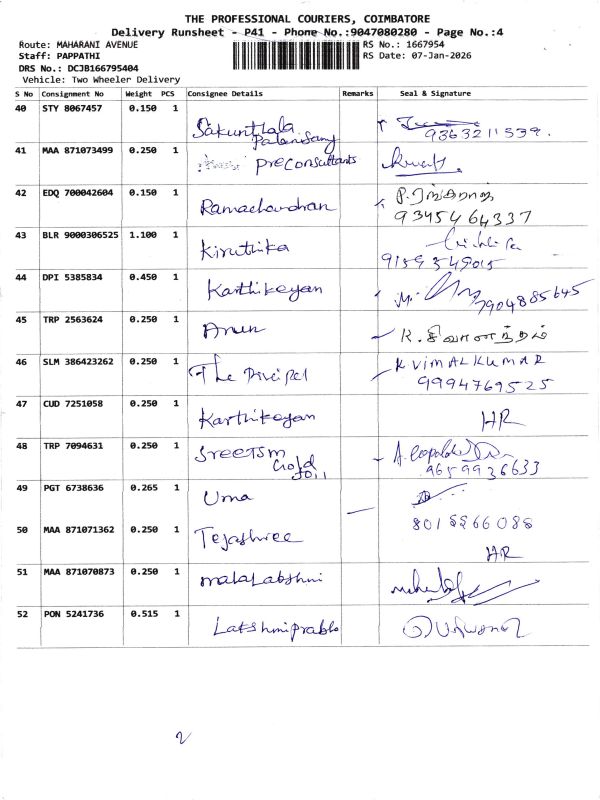 THE PROFESSIONAL COURIERS, COIMBATORE
Delivery Runsheet - P41 - Phone No.:9047080280 - Page No.:4
Route: MAHARANI AVENUE
RS No.: 1667954
Staff: PAPPATHI
RS Date: 07-Jan-2026
DRS No.: DCJB166795404
Vehicle: Two Wheeler Delivery
S No Consignment No Weight PCS Consignee Details Remarks Seal & Signature
40 STY 8067457 0.150 1
Sakunthala
Palanisamy
9363211539.
41 MAA 871073499 0.250 1
Preconsultants
42 EDQ 700042604 0.150 1
Ramachandran
9345464337
43 BLR 9000306525 1.100 1
Kiruthika
9159349015
44 DPI 5385834 0.450 1
Karthikeyan
7904885645
45 TRP 2563624 0.250 1
Arun
K. சிவானந்தம்
46 SLM 386423262 0.250 1
The
K VIMAL KUMAR
9994769525
47 CUD 7251058 0.250 1
Karthikeyan
HR
48 TRP 7094631 0.250 1
Sreetsm
Gold
9659936633
49 PGT 6738636 0.265 1
Uma
50 MAA 871071362 0.250 1
Tejashree
HR
51 MAA 871070873 0.250 1
malalabshmi
52 PON 5241736 0.515 1
Lakshmiprabha
2